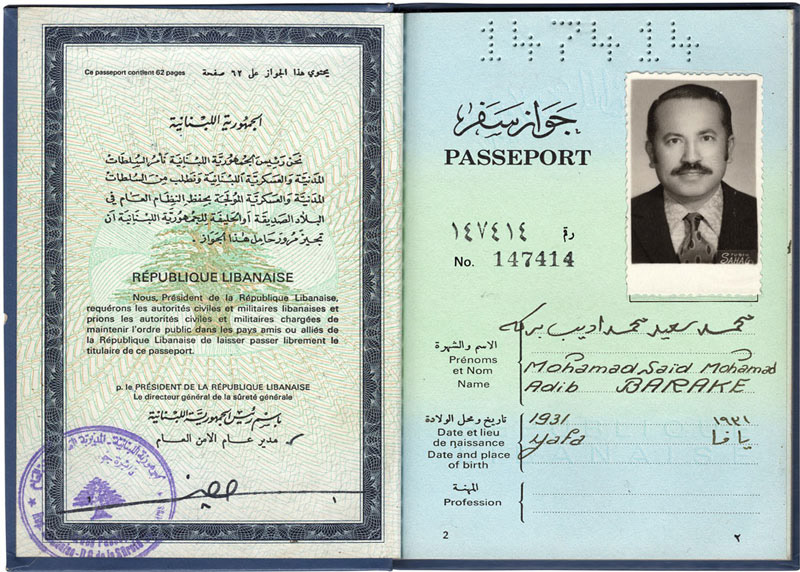 Ce passeport contient 62 pages يحتوي هذا الجواز على ٦٢ صفحة
الجمهورية اللبنانية
نحن رئيس الجمهورية اللبنانية نأمر السلطات
المدنية والعسكرية اللبنانية ونطلب من السلطات
المدنية والعسكرية المولجة بحفظ النظام العام في
البلاد الصديقة أو الحليفة للجمهورية اللبنانية أن
تجيز مرور حامل هذا الجواز.
RÉPUBLIQUE LIBANAISE
Nous, Président de la République Libanaise,
requérons les autorités civiles et militaires libanaises et
prions les autorités civiles et militaires chargées de
maintenir l'ordre public dans les pays amis ou alliés de
la République Libanaise de laisser passer librement le
titulaire de ce passeport.
p. le PRÉSIDENT DE LA RÉPUBLIQUE LIBANAISE
Le directeur général de la sûreté générale
باسم رئيس الجمهورية اللبنانية
مدير عام الأمن العام
147414
جواز سفر
PASSEPORT
رقم ١٤٧٤١٤
No. 147414
STUDIO
SAHAG
محمد سعيد محمد اديب بركه
الاسم والشهرة
Prénoms
et Nom
Name
Mohamad Said Mohamad
Adib BARAKE
تاريخ ومحل الولادة
Date et lieu
de naissance
Date and place
of birth
1931 ١٩٣١
yafa يافا
المهنة
Profession
2 ٢